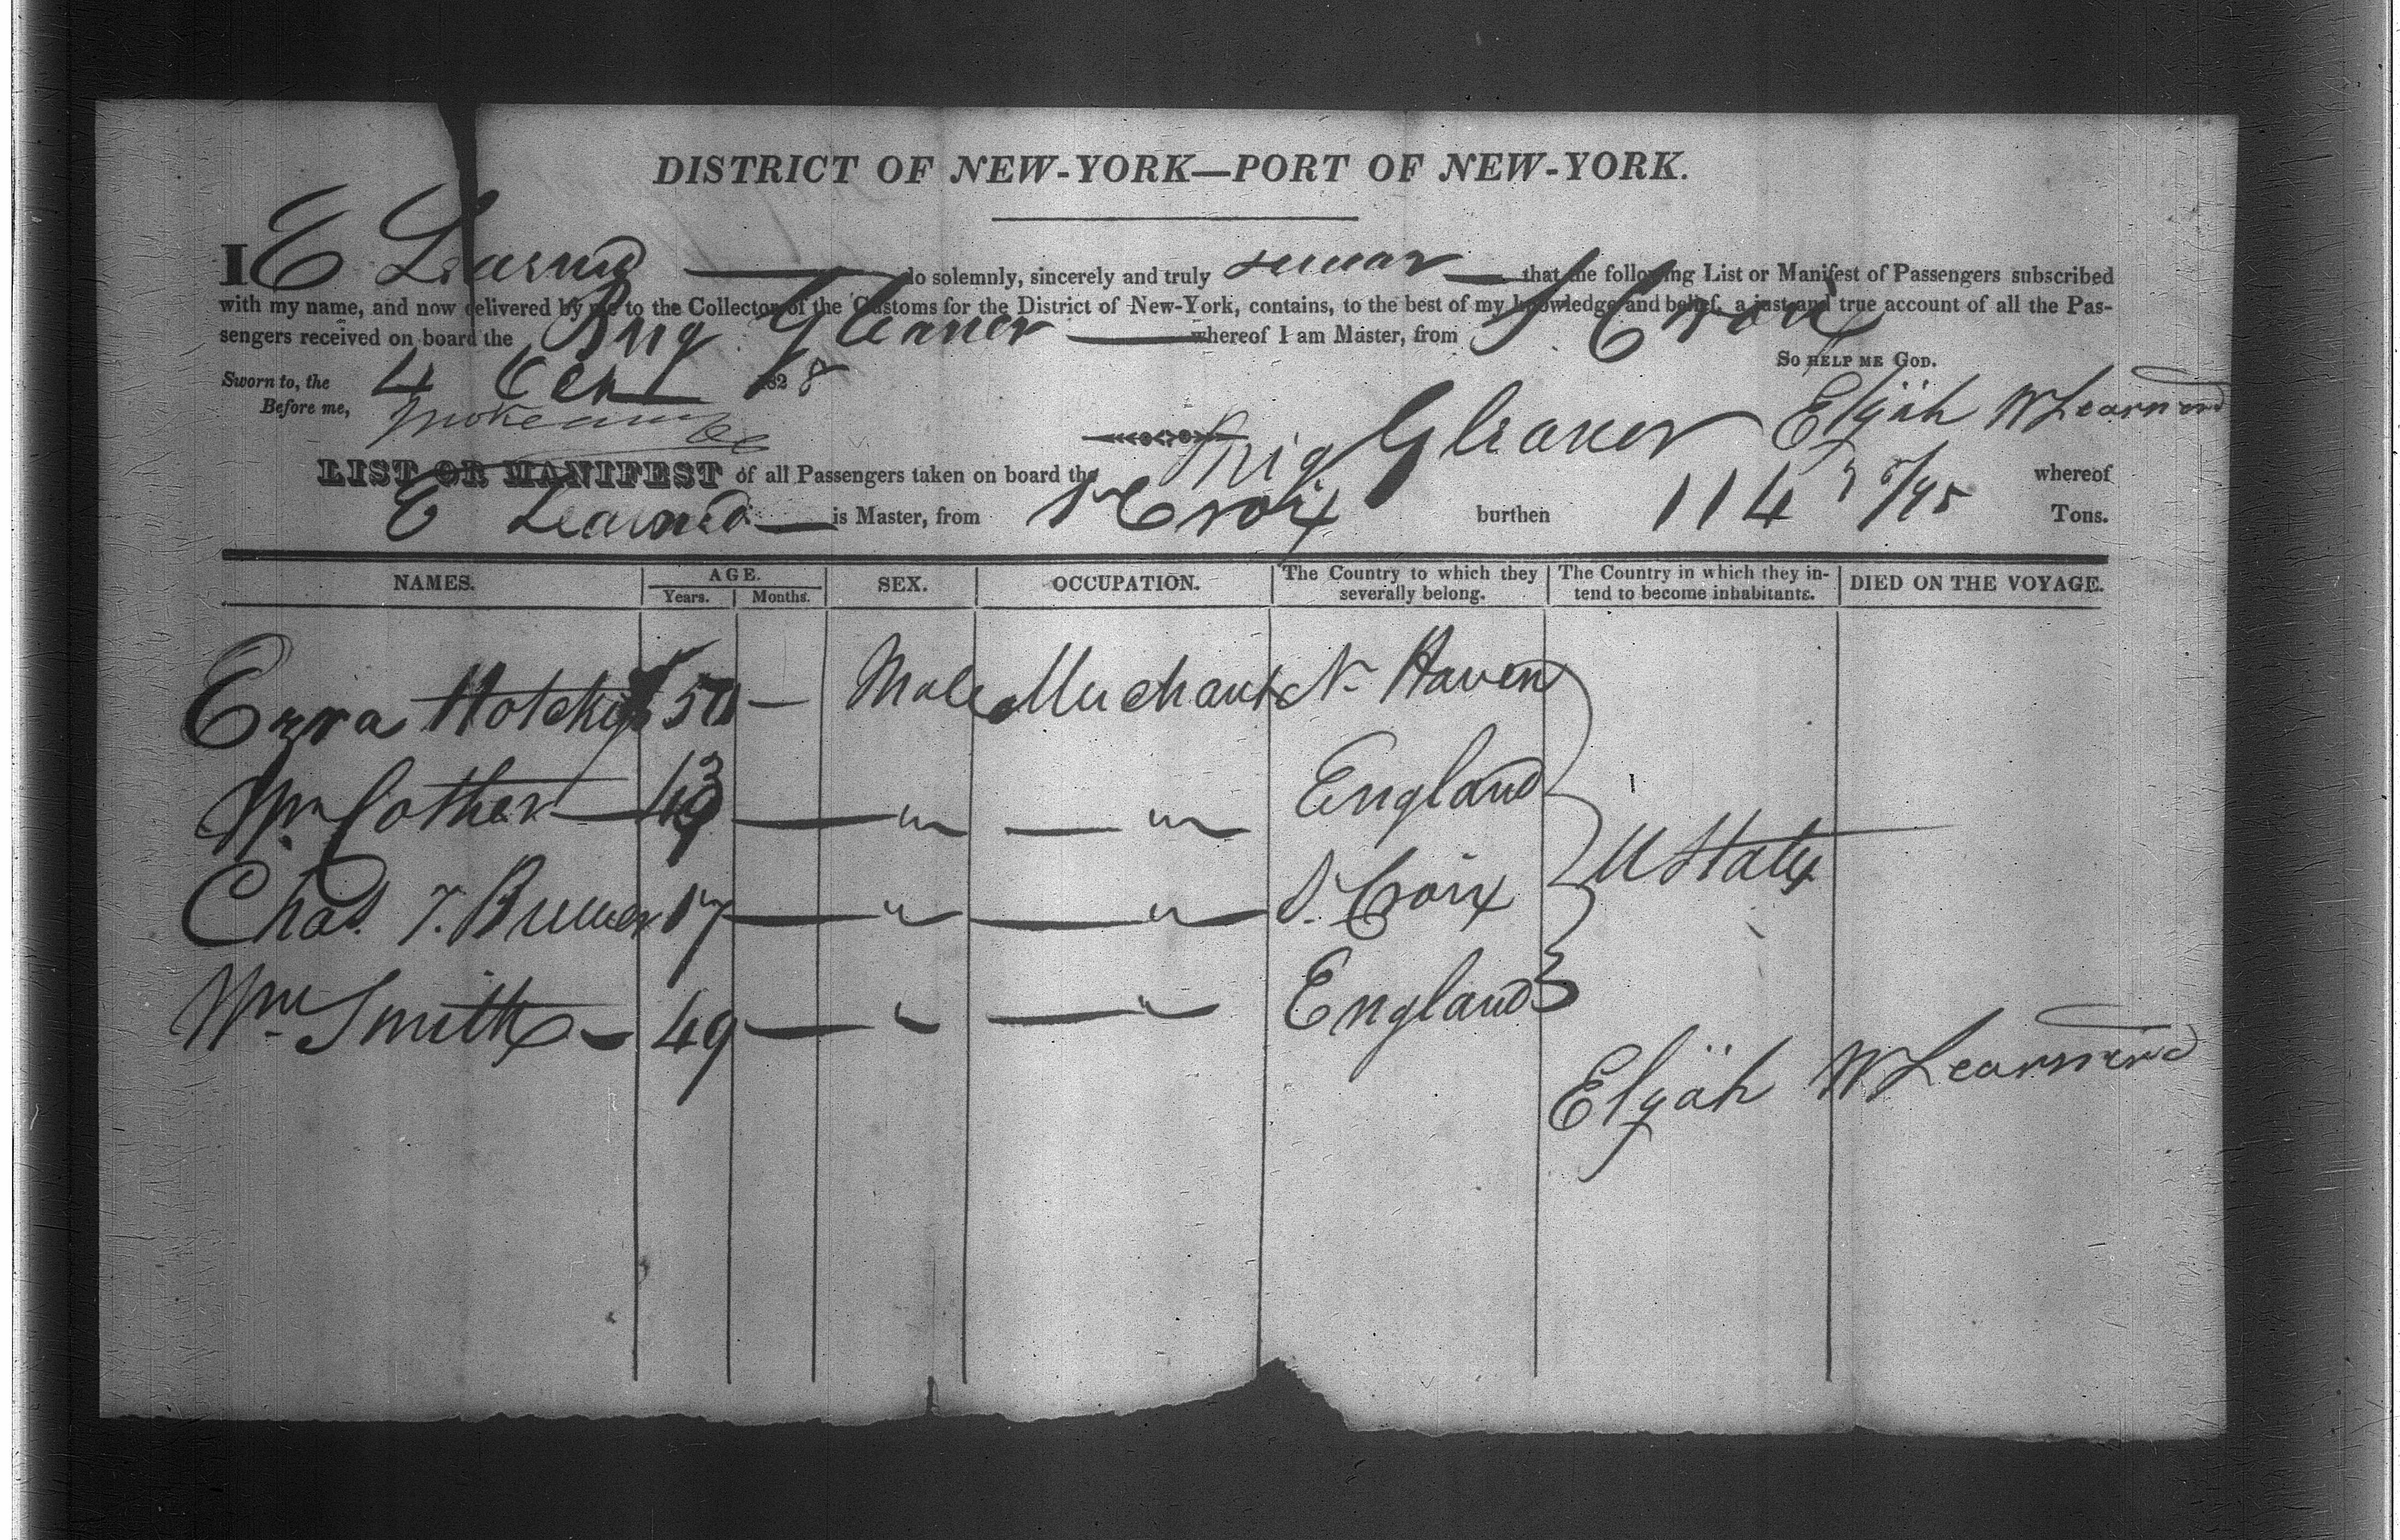 DISTRICT OF NEW-YORK—PORT OF NEW-YORK.
I E Learned do solemnly, sincerely and truly swear that the following List or Manifest of Passengers subscribed
with my name, and now delivered by me to the Collector of the Customs for the District of New-York, contains, to the best of my knowledge and belief, a just and true account of all the Pas-
sengers received on board the Brig Gleaner whereof I am Master, from St Croix
So HELP ME GOD.
Sworn to, the 4 1828
Before me,
Elijah W Learned
LIST OR MANIFEST of all Passengers taken on board the Brig Gleaner whereof
E Learned is Master, from St Croix burthen 114 /95 Tons.
NAMES. AGE. Years. Months. SEX. OCCUPATION. The Country to which they severally belong. The Country in which they in-tend to become inhabitants. DIED ON THE VOYAGE.
Ezra Hotchkiss 50 — Male Merchant N. Haven
Wm Cother — — " — " England
U States
Chas. T. Brewer 17 — " — " St. Croix
Wm Smith — 49 — " — " England
Elijah W Learned